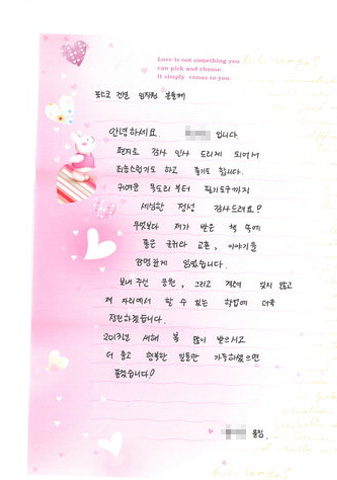 Love is not something you
can pick and choose.
It simply comes to you.
포스코 건설 임직원 분들께
안녕하세요. 입니다.
편지로 감사 인사 드리게 되어서
하고 좋기도 합니다.
귀여운 목도리부터 필기도구까지
세심한 정성 감사드려요!
무엇보다 제가 받은 책 속에
좋은 글귀와 교훈, 이야기들
감명깊게 읽었습니다.
보내주신 응원, 그리고 격려 잊지 않고
제 자리에서 할 수 있는 학업에 더욱
정진하겠습니다.
2013년 새해 복 많이 받으시고
더 좋고 행복한 일들만 가득하셨으면
좋겠습니다!
올림.